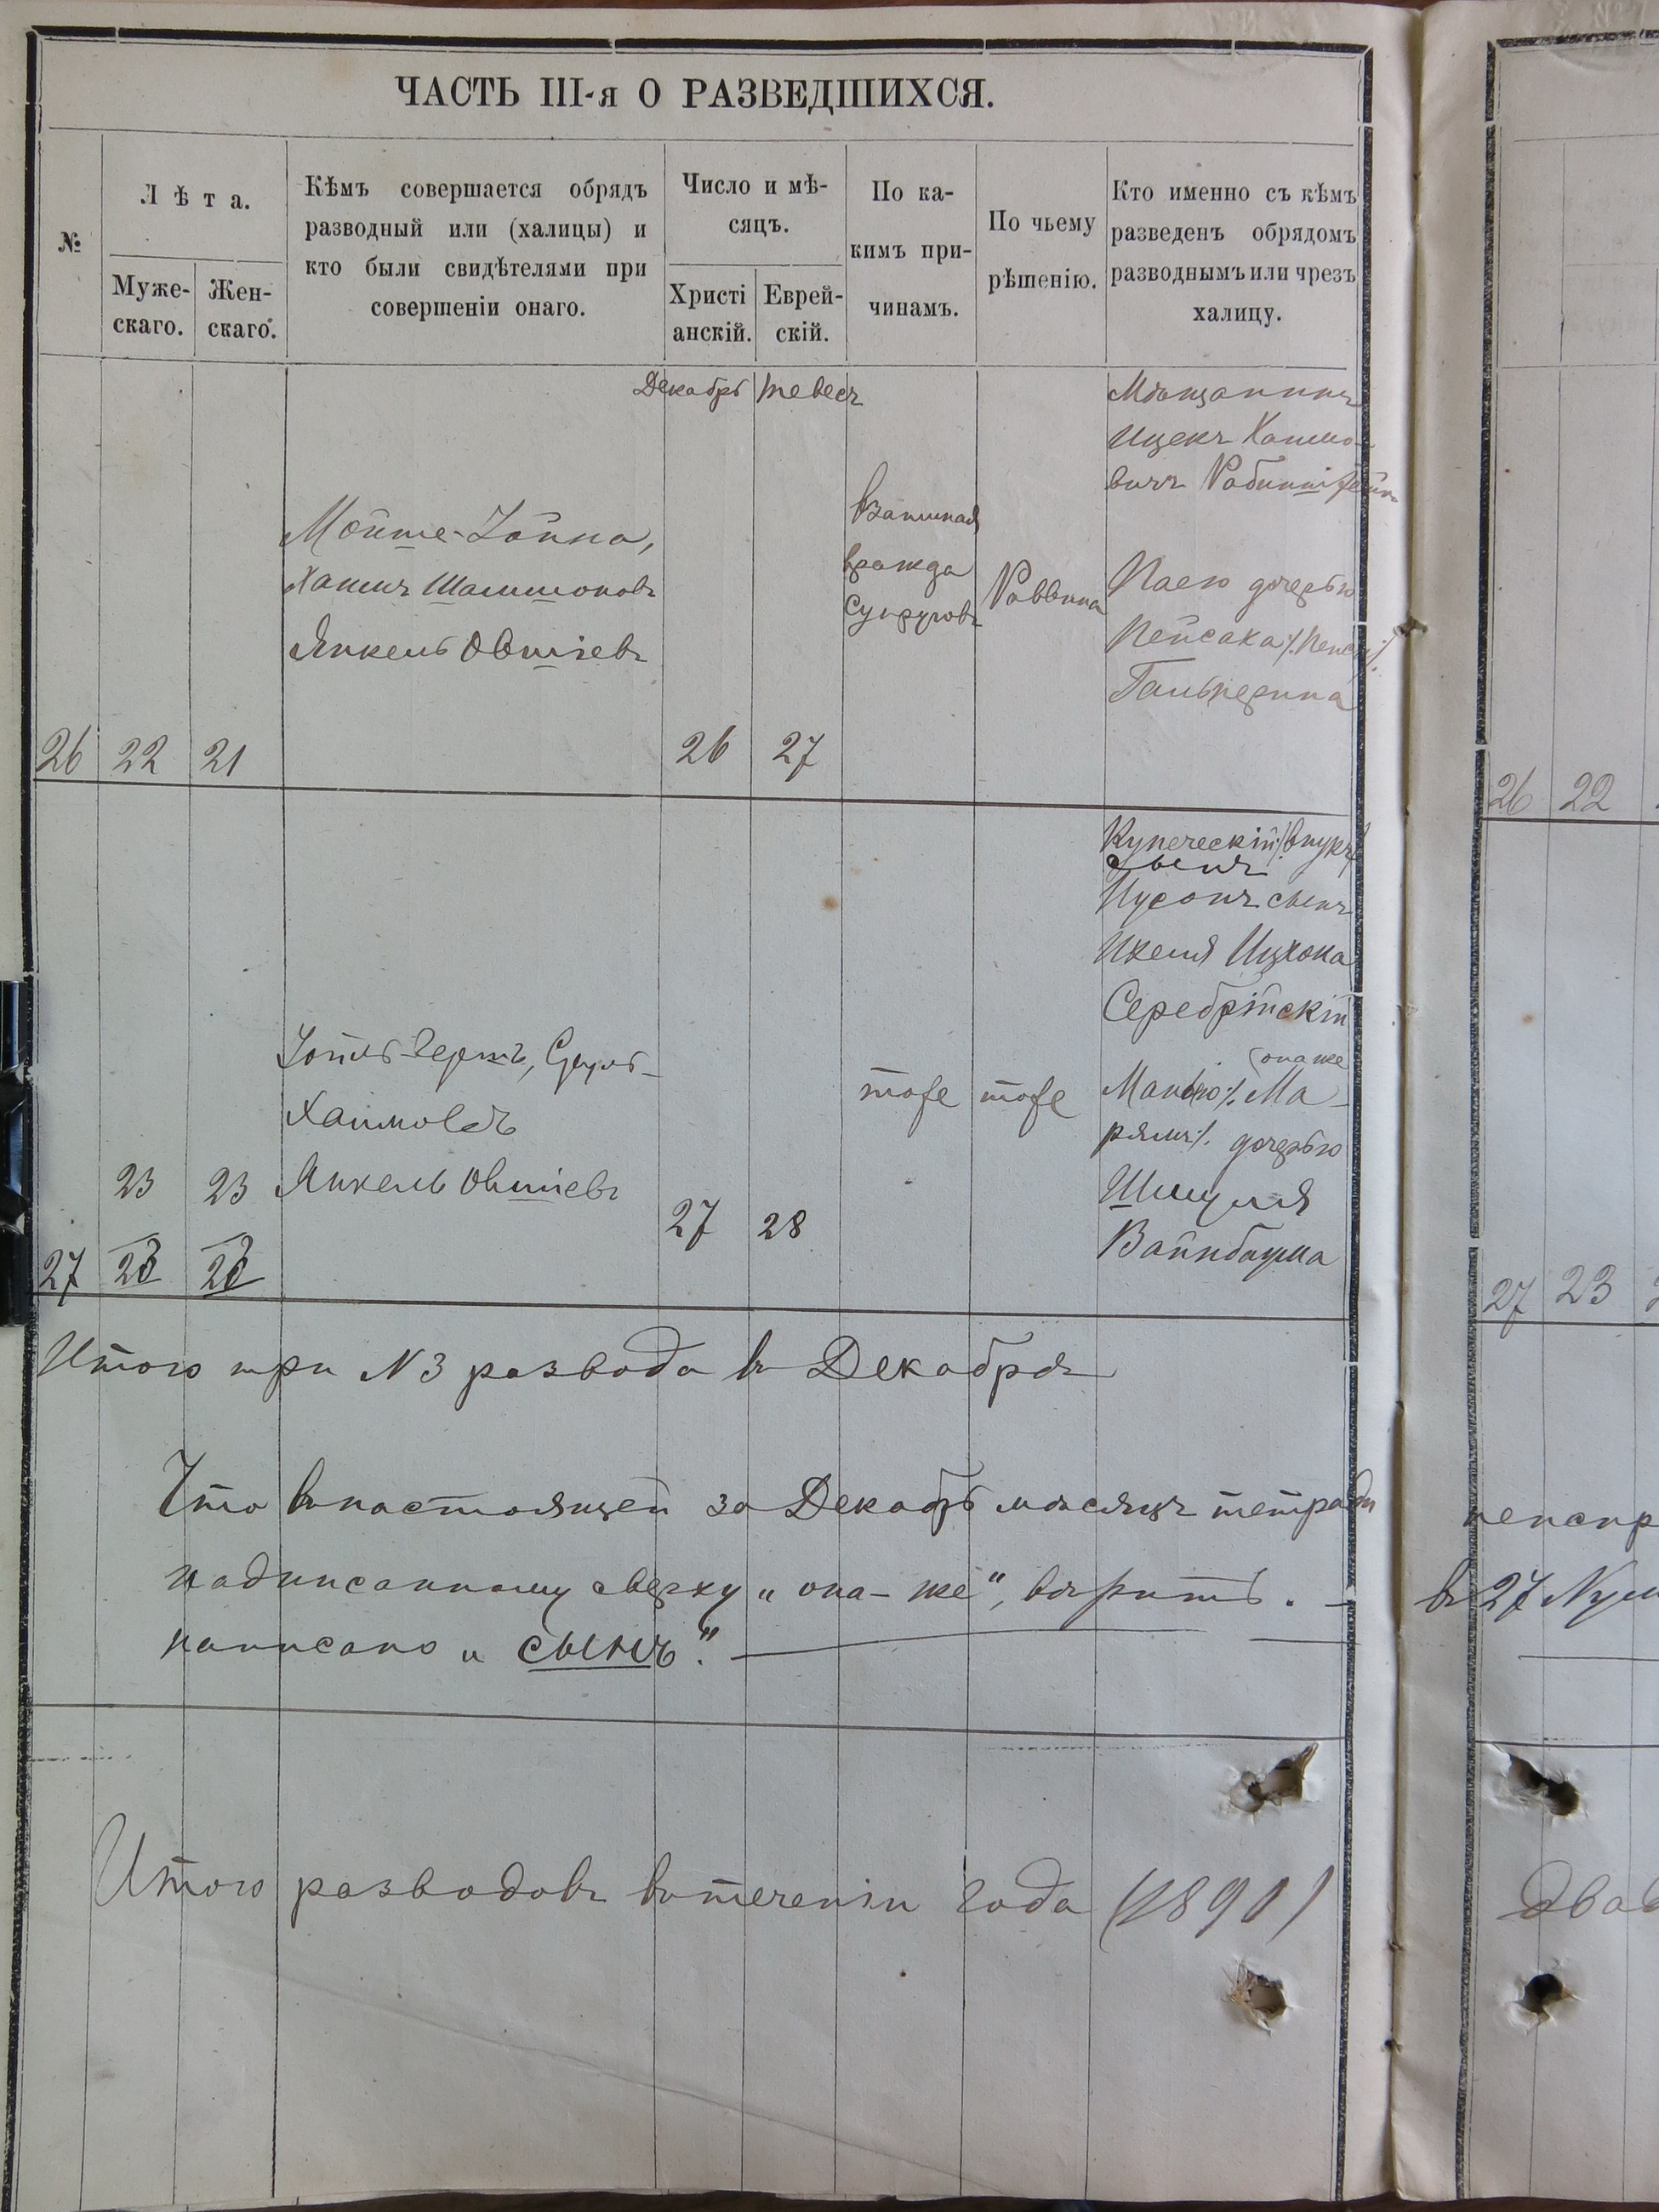 ЧАСТЬ III-я О РАЗВЕДШИХСЯ.
№
Лѣта.
Муже-
скаго.
Жен-
скаго.
Кѣмъ совершается обрядъ
разводный или (халицы) и
кто были свидѣтелями при
совершеніи онаго.
Число и мѣ-
сяцъ.
Христі
анскій.
Еврей-
скій.
По ка-
кимъ при-
чинамъ.
По чьему
рѣшенію.
Кто именно съ кѣмъ
разведенъ обрядомъ
разводнымъ или чрезъ
халицу.
Декабрь Тевесъ
26 22 21
Мойше-Зойна,
Хаимъ Шашмоновъ
Янкель Овшіевъ
26 27
Взаимная
вражда
супруговъ
Раввина
Мѣщанинъ
Ицекъ Хаимо-
вичъ
дочерью
Пейсаха
Гальперина
27 23 23
28 28
Хаимовъ
Янкель Овшіевъ
27 28
тоже тоже
Купеческій /внукъ/
сынъ
Нусонъ сынъ
Икеля Ицхока
Серебрійскій
она же
Манею /. Ма-
рямъ/. дочерью
Шмуля
Вайнбаума
Итого три № 3 развода въ Декабрѣ
Что въ настоящей за Декабрь мѣсяцъ тетради
надписанному сверху „она-же“, вѣрить. —
написано „сынъ“.
Итого разводовъ въ теченіи года (1891)
26 22
27 23
неиспр
въ 27 Нум
два